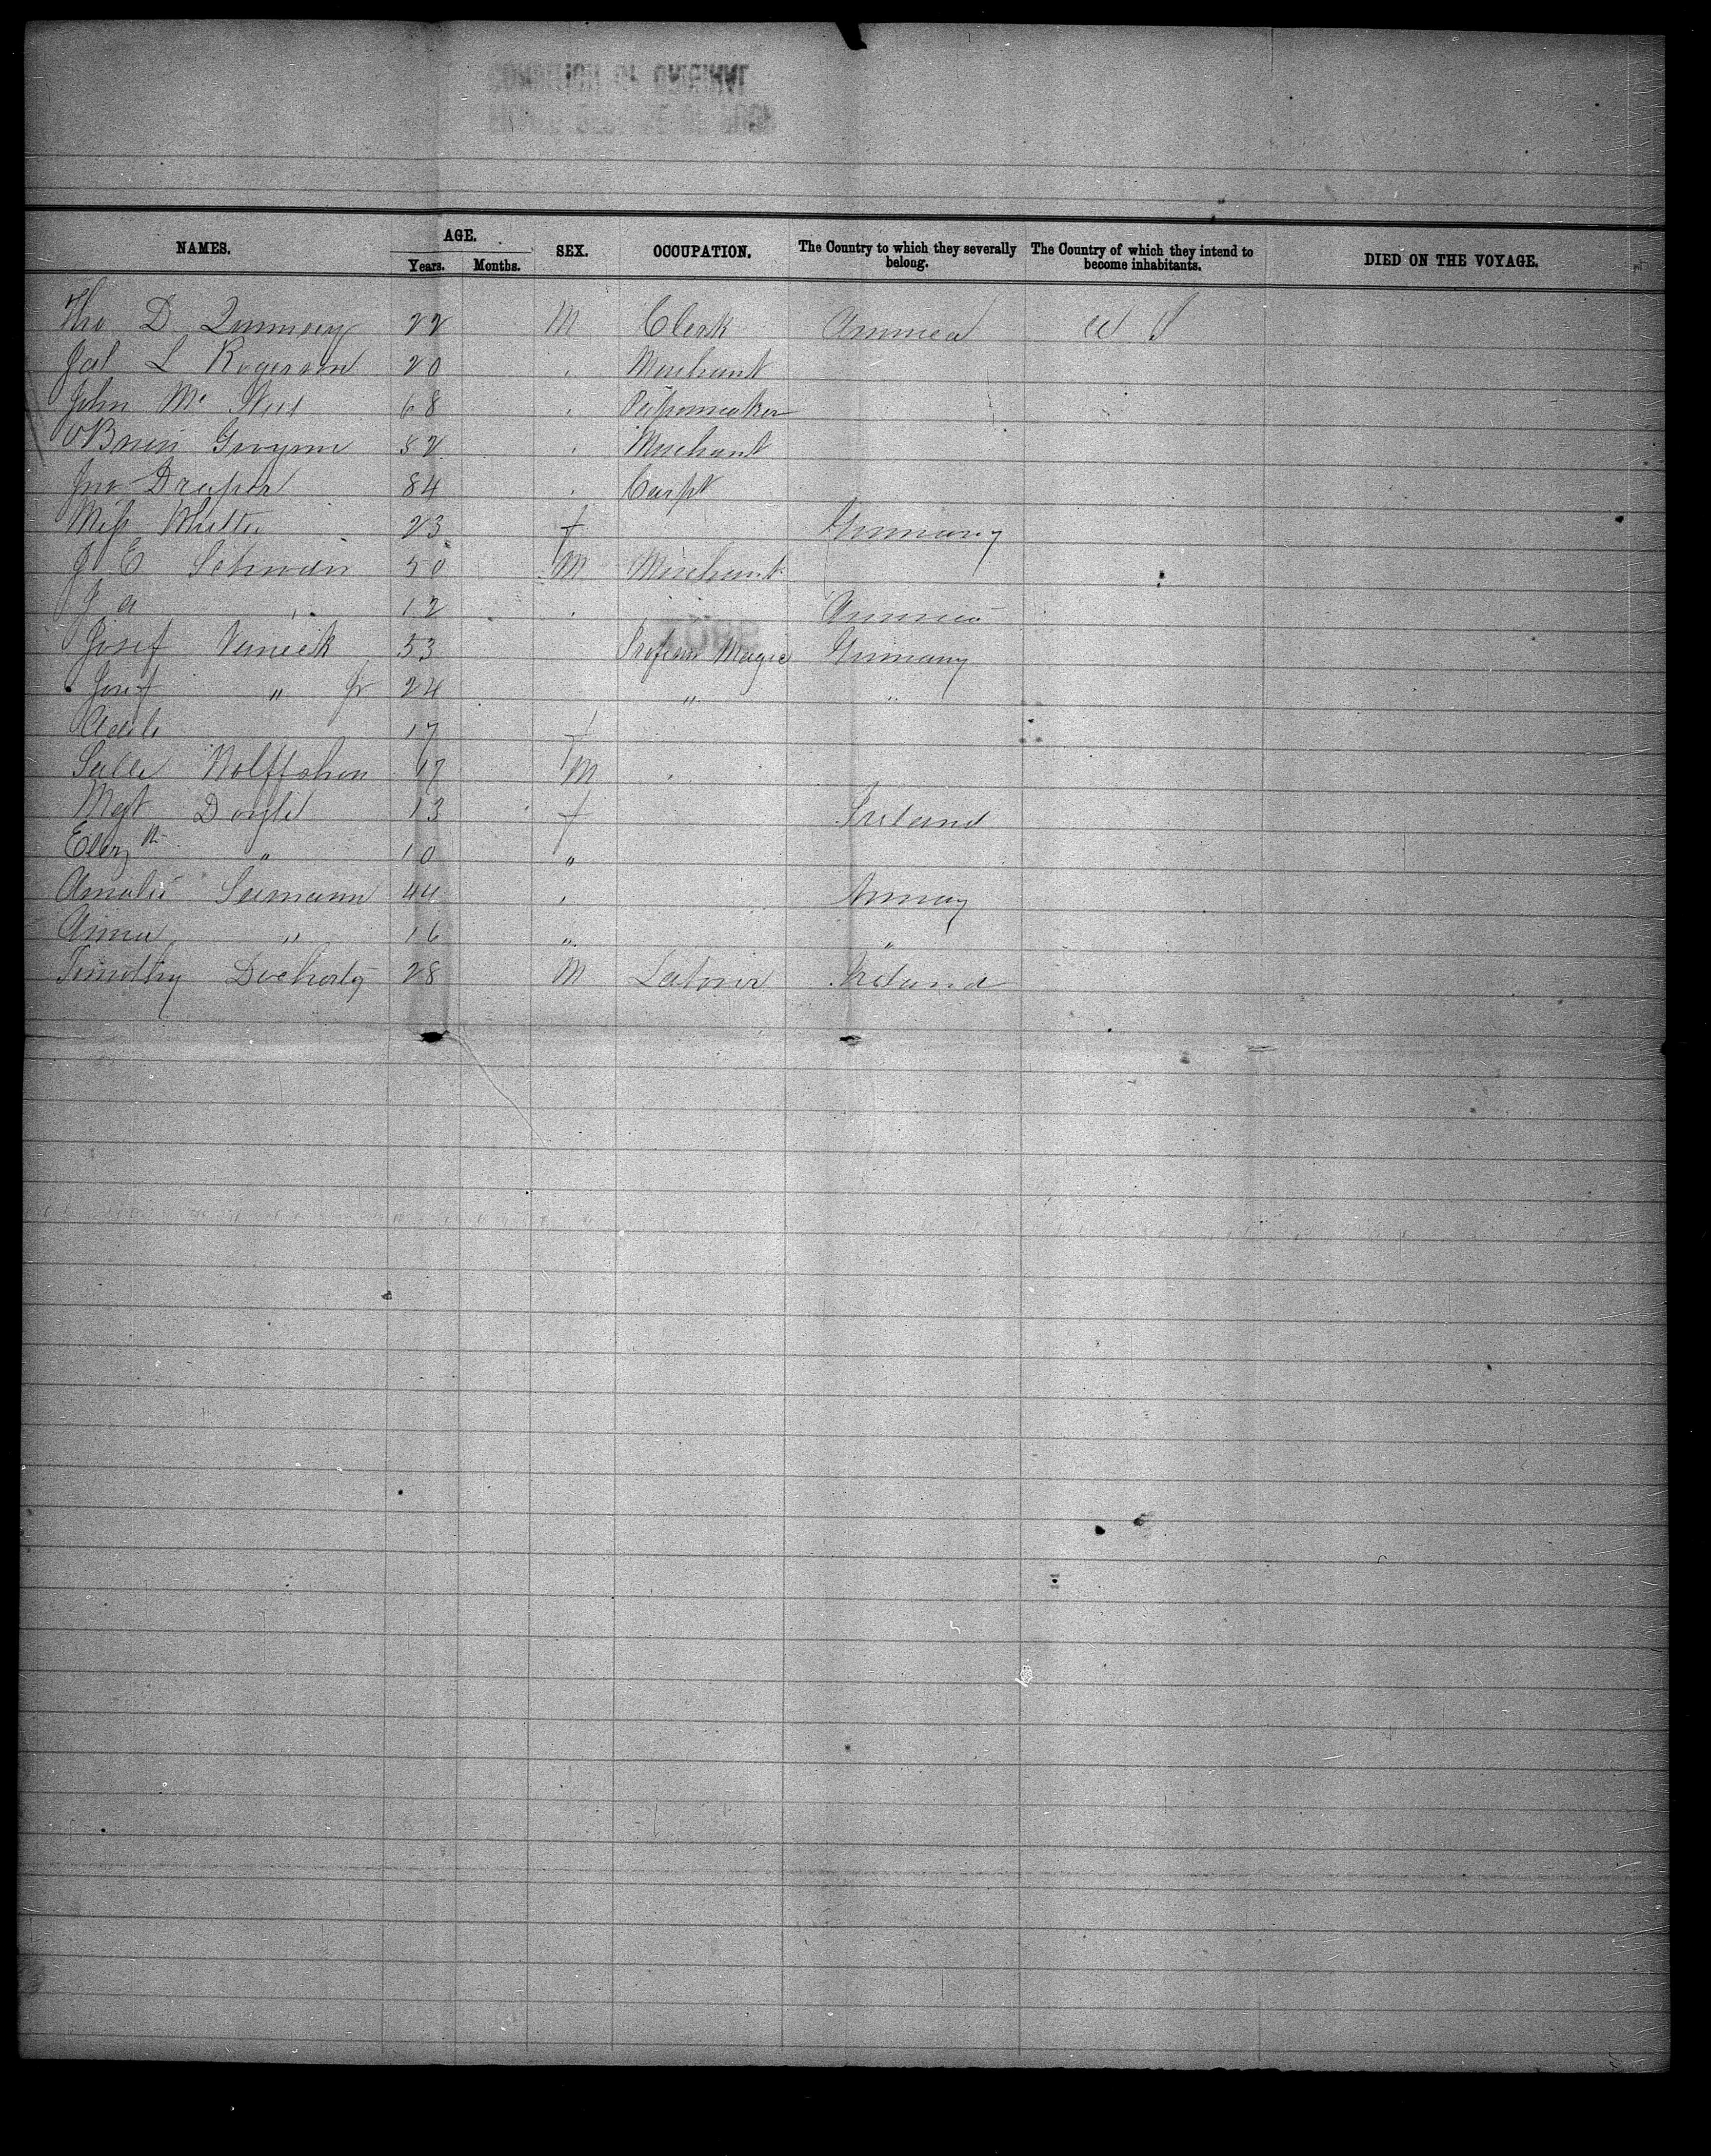 NAMES. AGE. SEX. OCCUPATION. The Country to which they severally belong. The Country of which they intend to become inhabitants. DIED ON THE VOYAGE.
Years. Months.
Tho D 22 M Clerk America U S
L Rogerson 20 Merchant
John Mc 68 Patternmaker
OBrien 52 Merchant
Jno Draper 84 Carpt
Miss 23 f Germany
J E Schwain 50 M Merchant
J A " 12 America
Josef 53 Professor Magic Germany
Josef " Jr 24 " "
Adele 17 f
Wolffsohn 17 M
Mgt Doyle 13 f Ireland
Elizth " 10 "
Amalie Seemann 44
Anna " 16 " "
Timothy Docherty 28 M Laborer Ireland